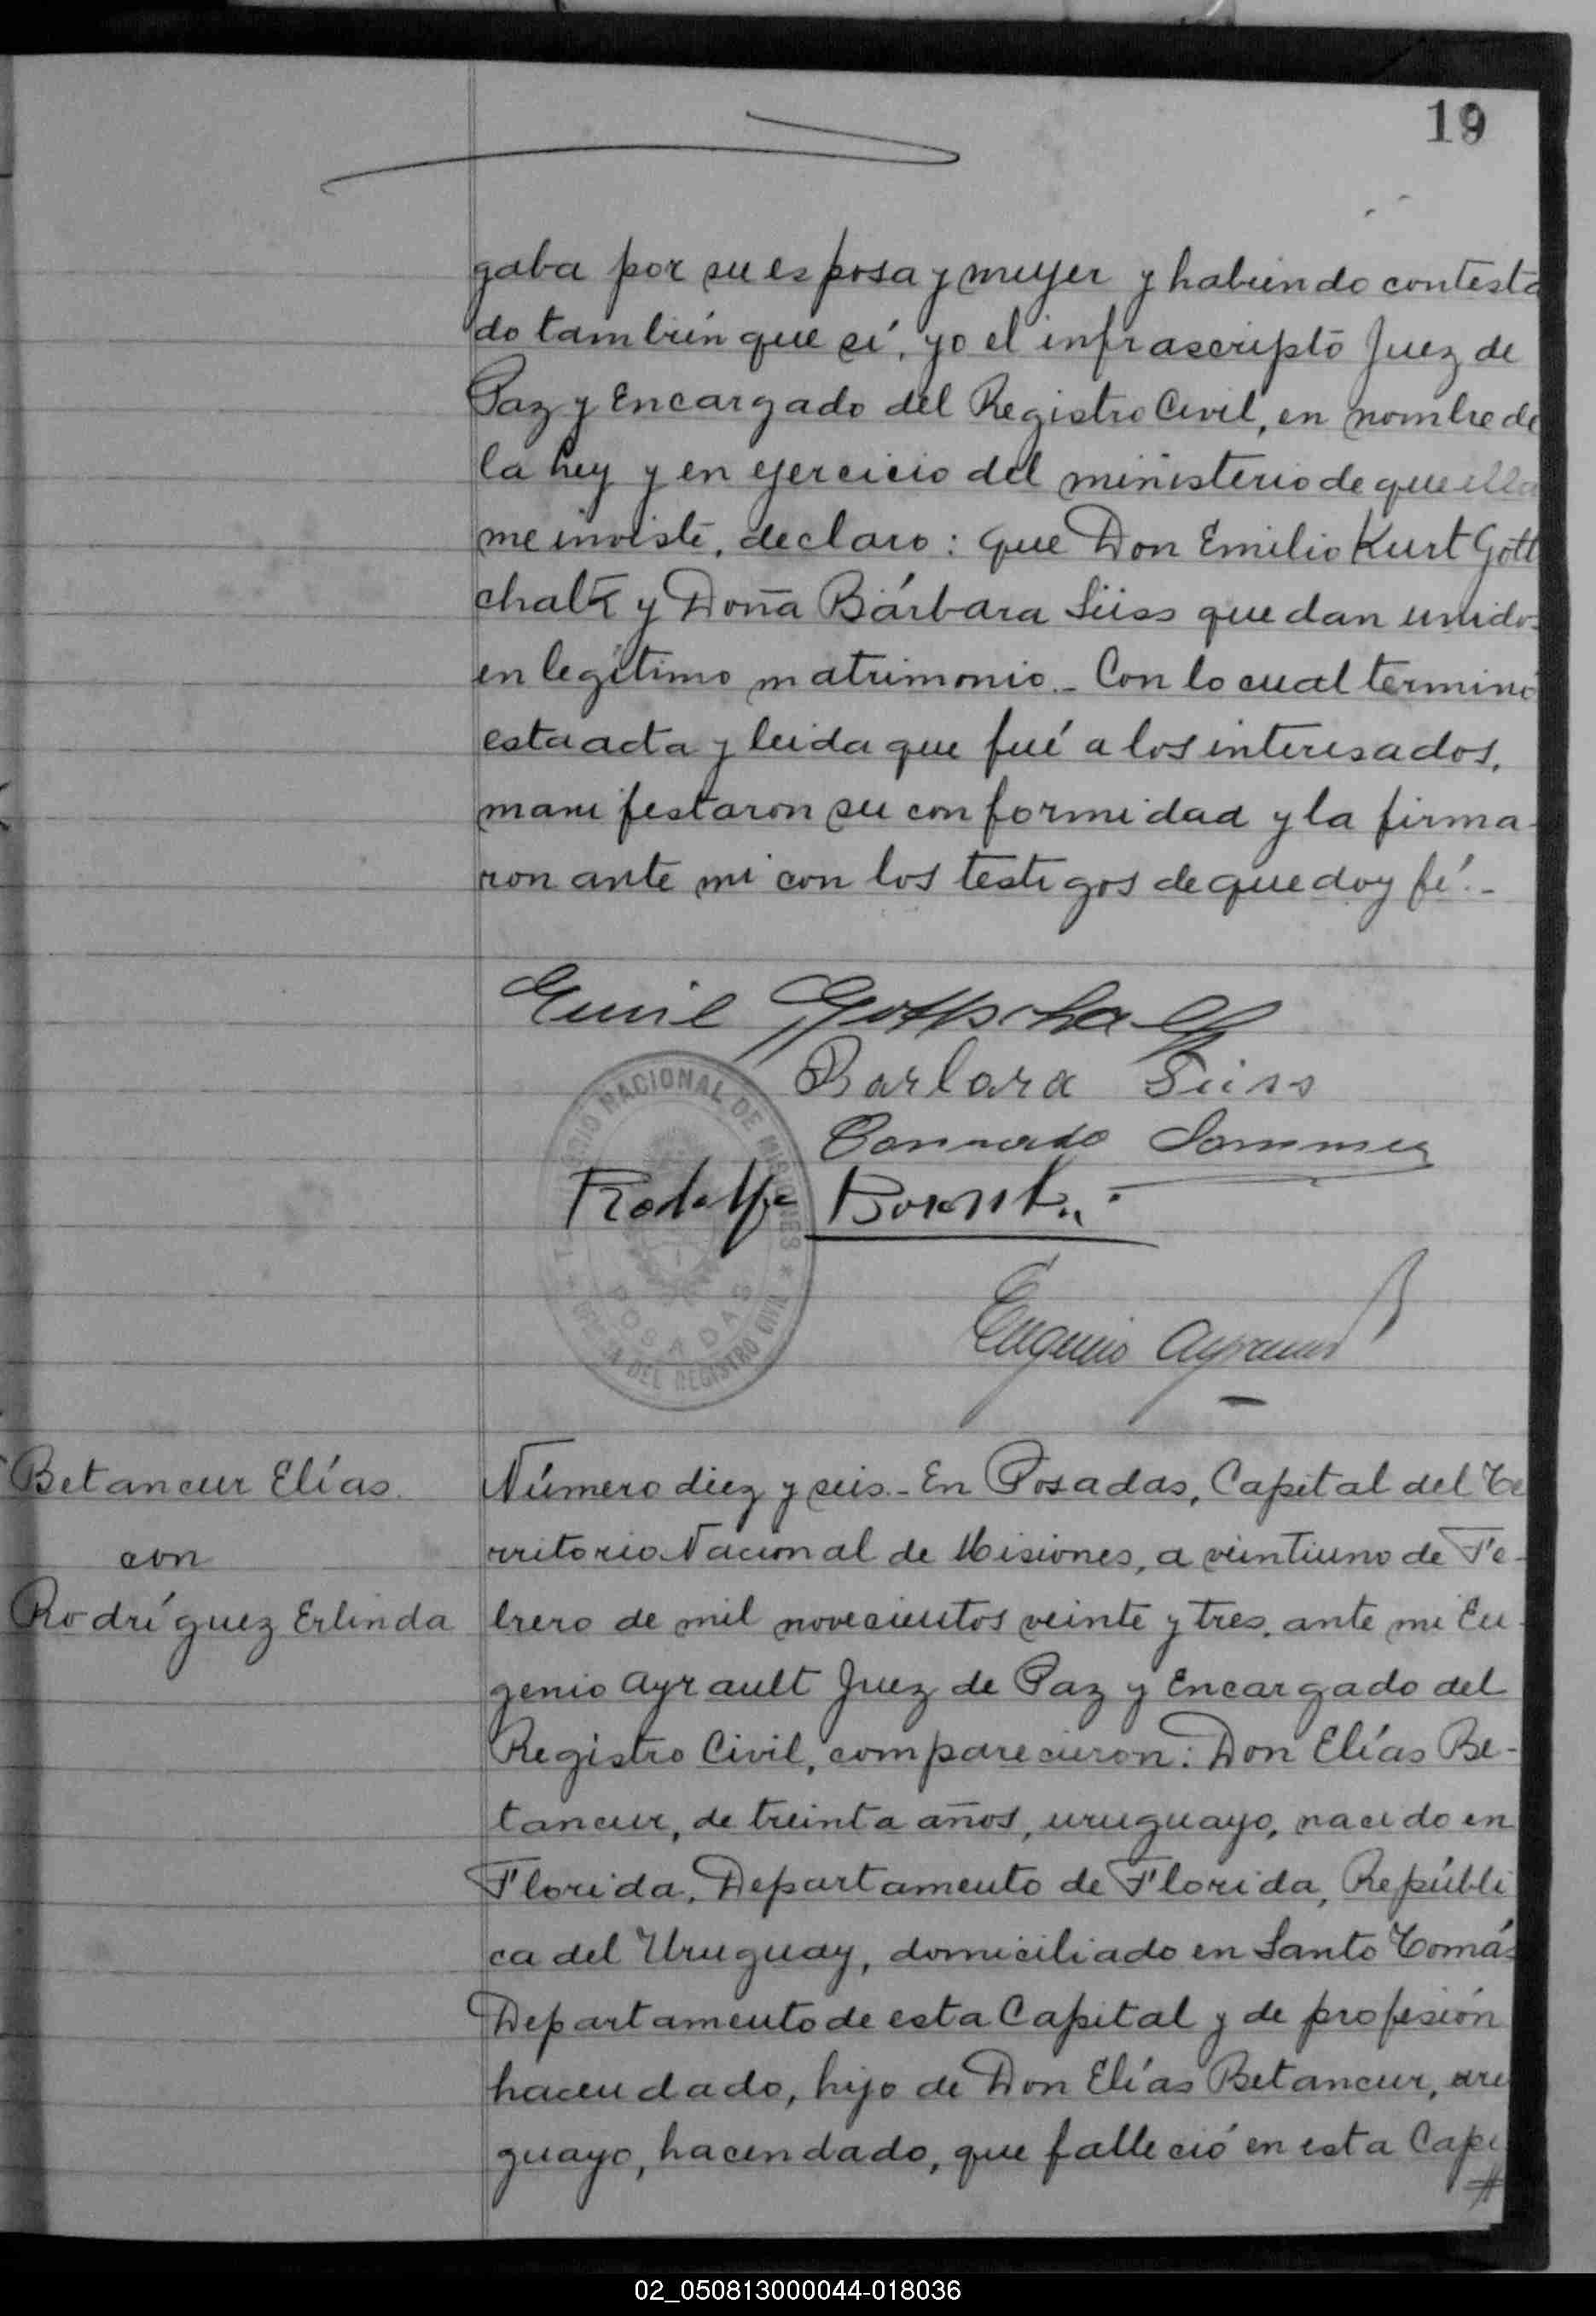 19
gaba por su esposa y mujer y habiendo contesta
do también que sí, yo el infrascripto Juez de
Paz y Encargado del Registro Civil, en nombre de
la Ley y en ejercicio del ministerio de que ella
me inviste, declaro: que Don Emilio Kurt Gott
chalk y Doña Bárbara Süss quedan unidos
en legítimo matrimonio.- Con lo cual terminó
esta acta y leida que fué a los interesados,
manifestaron su conformidad y la firma-
ron ante mi con los testigos de que doy fé.-
Emil Gottschalk
Barbara Süss
Conrado Sommer
Rodolfo
NACIONAL DE MISIONES
POSADAS
DEL REGISTRO CIVIL
Eugenio Ayrault
Betancur Elías
con
Rodríguez Erlinda
Número diez y seis.- En Posadas, Capital del Te
rritorio Nacional de Misiones, a veintiuno de Fe-
brero de mil novecientos veinte y tres, ante mi Eu-
genio Ayrault Juez de Paz y Encargado del
Registro Civil, comparecieron: Don Elías Be-
tancur, de treinta años, uruguayo, nacido en
Florida, Departamento de Florida, Repúbli
ca del Uruguay, domiciliado en Santo Tomás
Departamento de esta Capital y de profesión
hacendado, hijo de Don Elías Betancur, uru
guayo, hacendado, que falleció en esta Capi
#
02_050813000044-018036